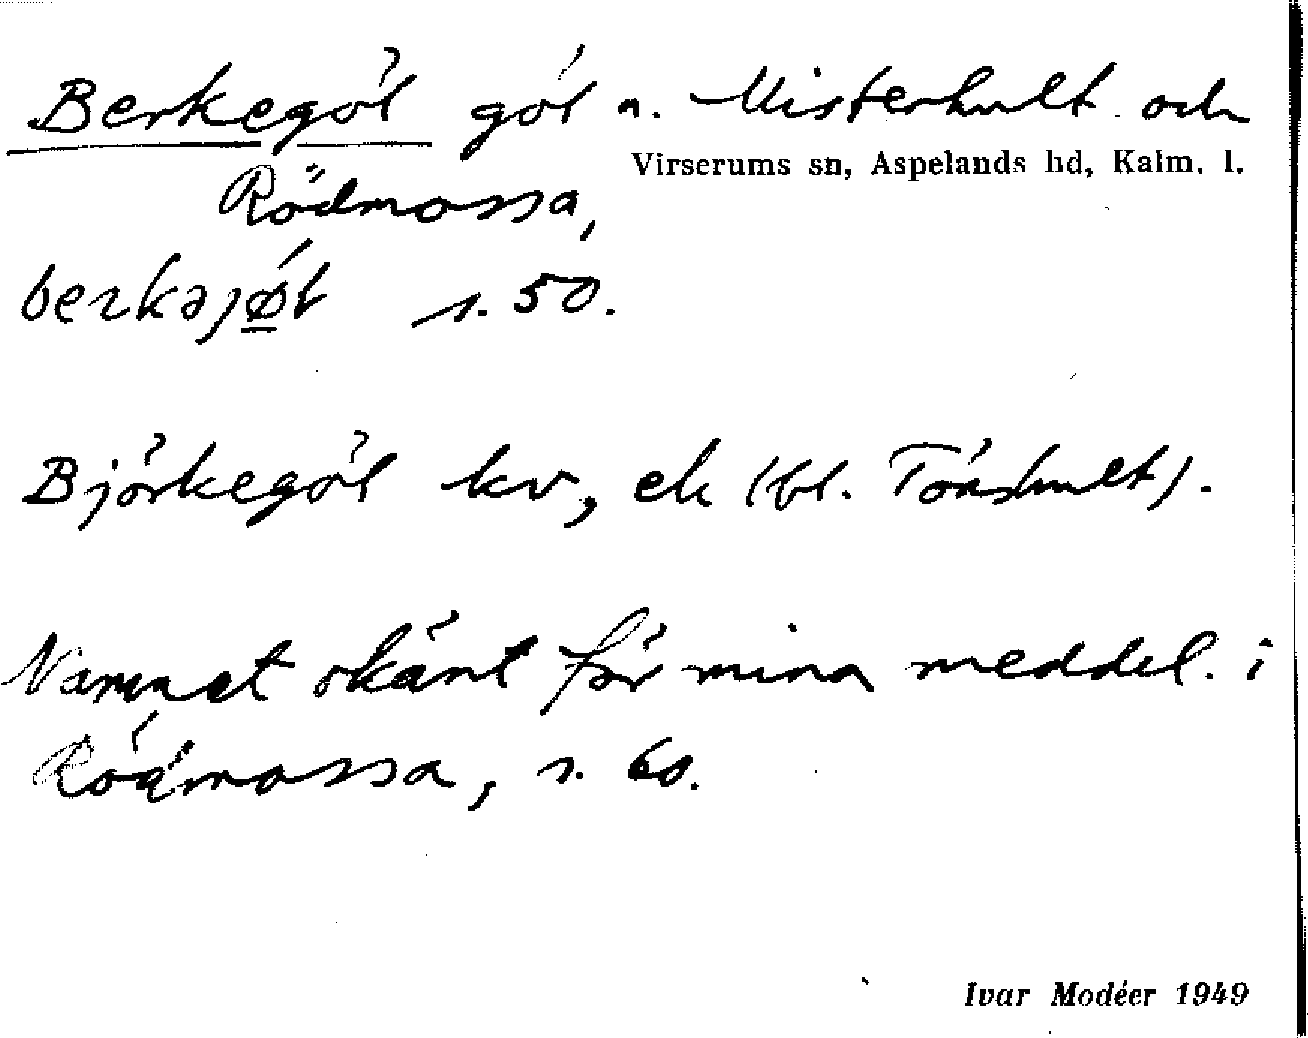 Berkegöl göl n. Misterhult och
Virserums sn, Aspelands hd, Kalm. l.
Rödmossa,
bęrkəjǿ̱l s. 50.
Björkegöl kv, ek (bl. Tönshult).
Namnet okänt för mina meddel. i
Rödmossa, s. 60.
Ivar Modéer 1949